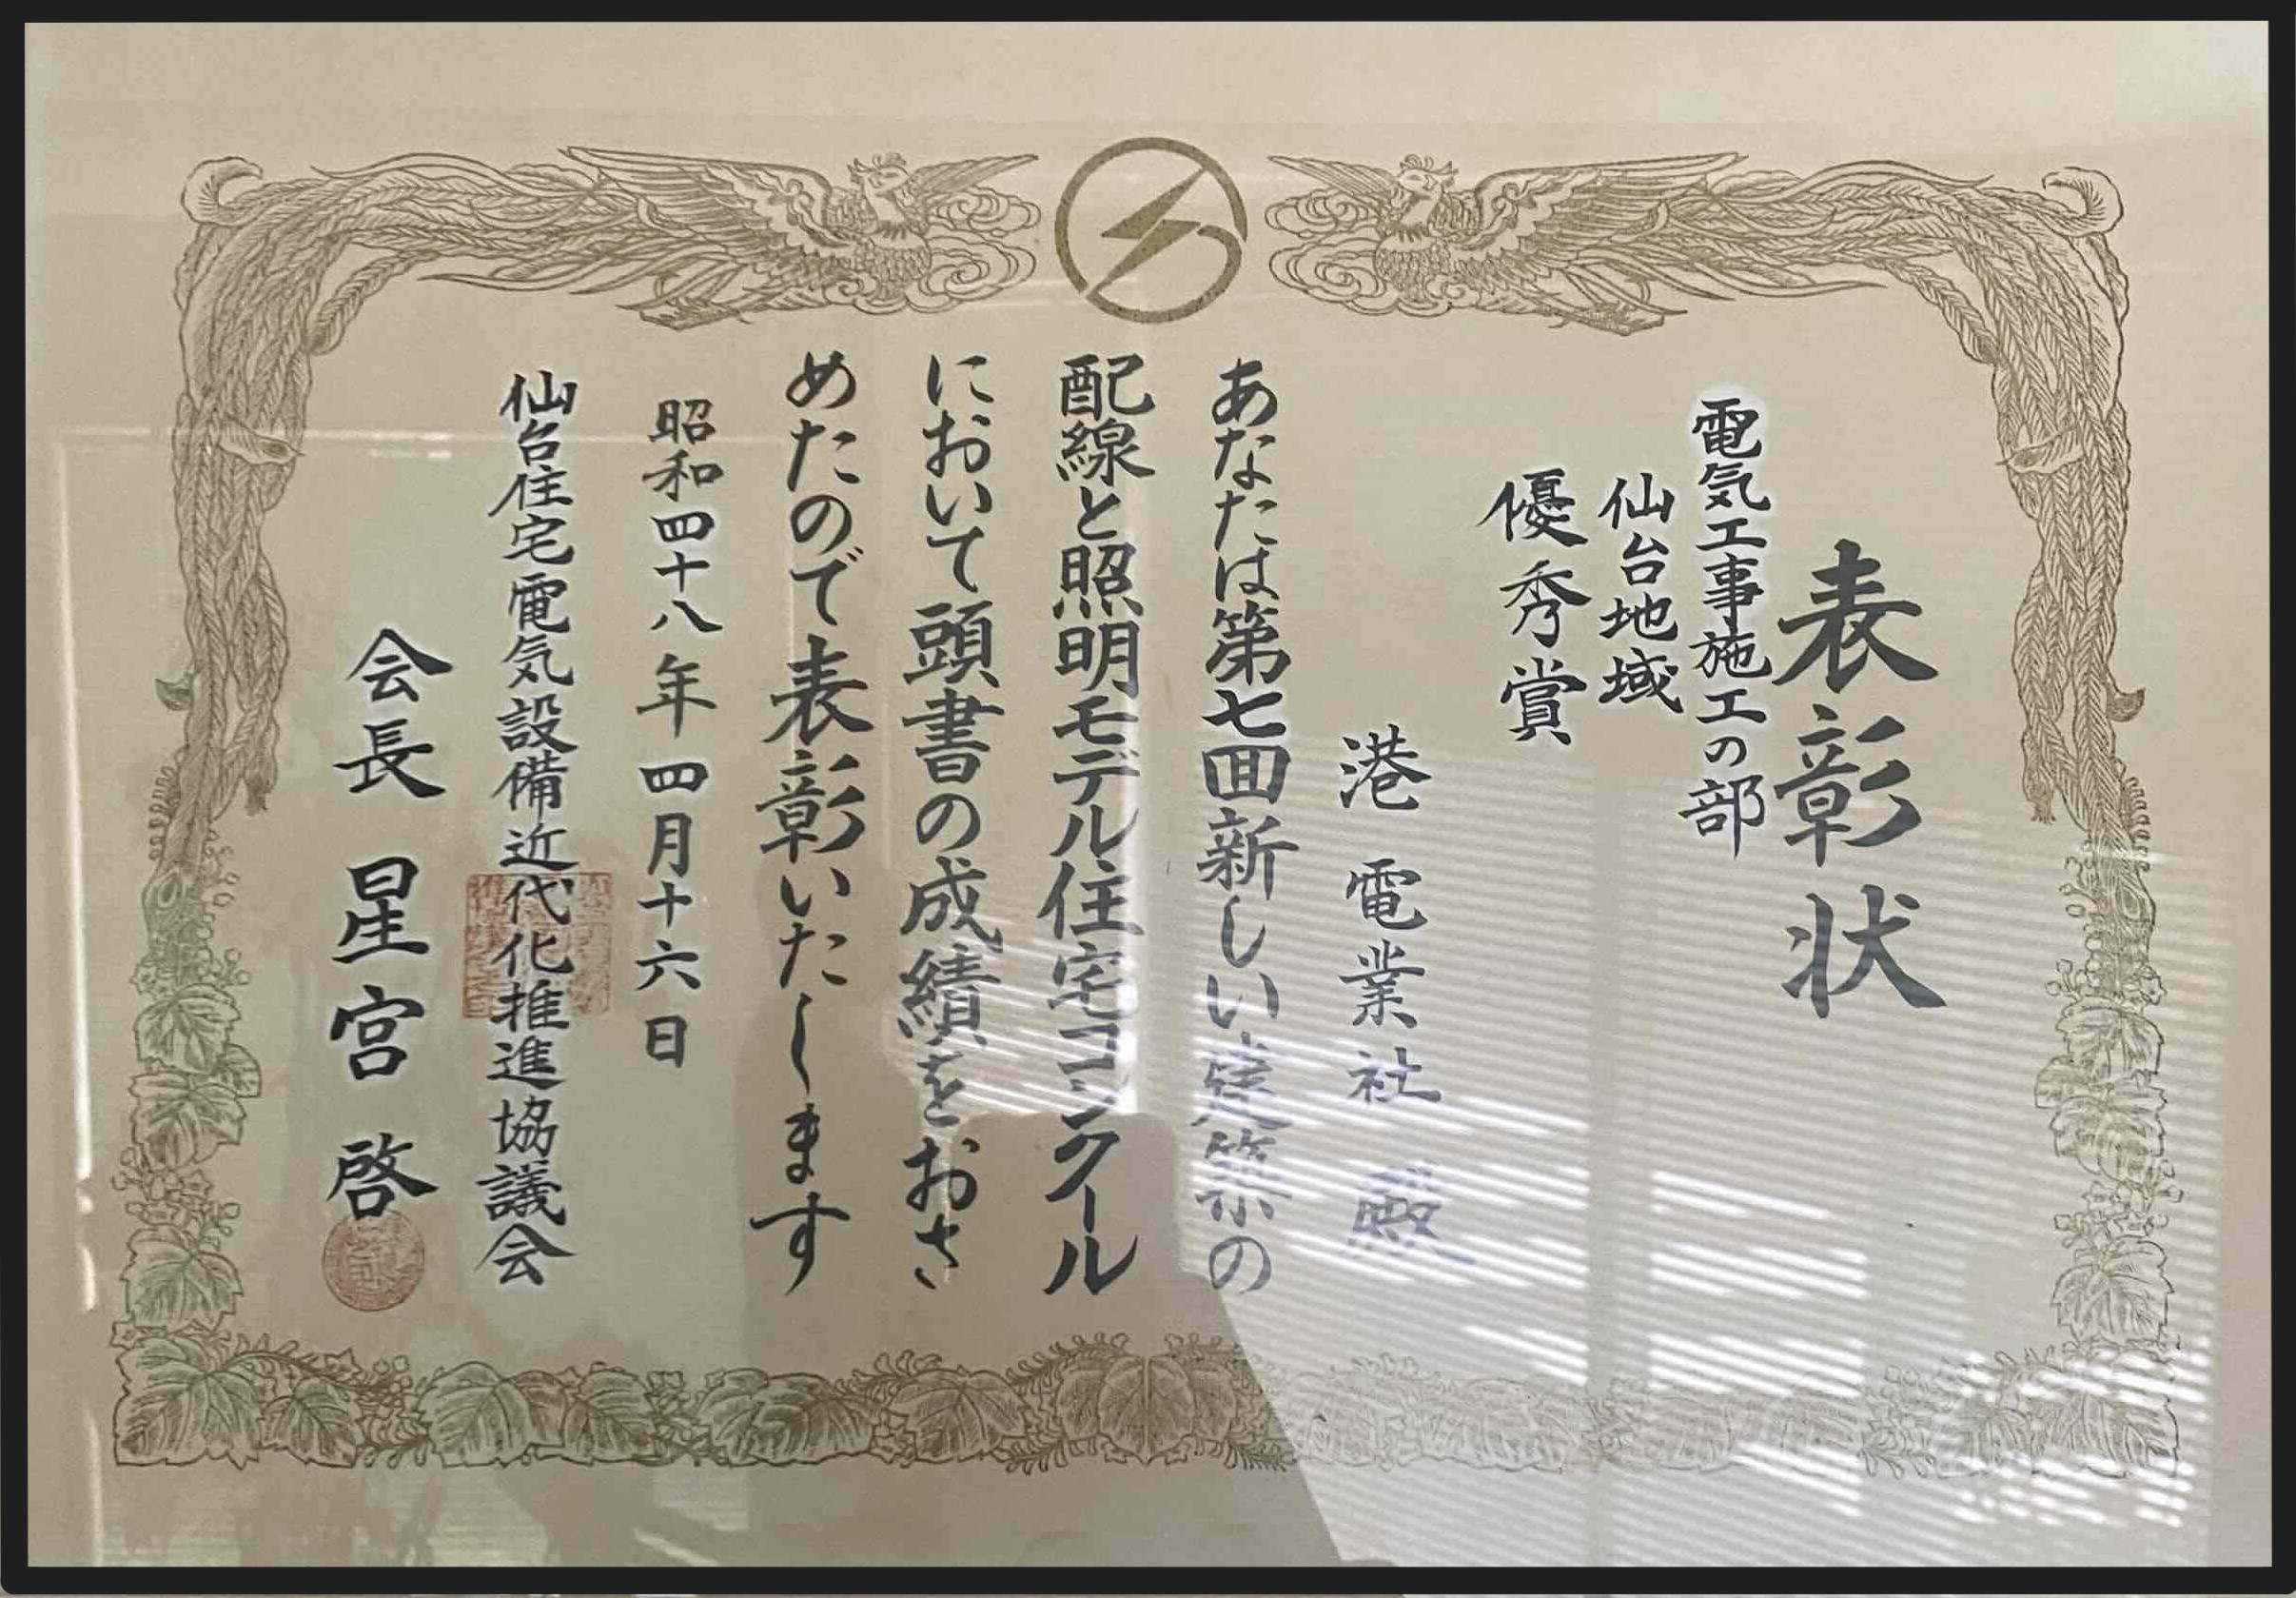 表彰状
電気工事施工の部
仙台地域
優秀賞
港電業社殿
あなたは第七回新しい建築の
配線と照明モデル住宅コンクール
において頭書の成績をおさ
めたので表彰いたします
昭和四十八年四月十六日
仙台住宅電気設備近代化推進協議会
会長 星宮啓